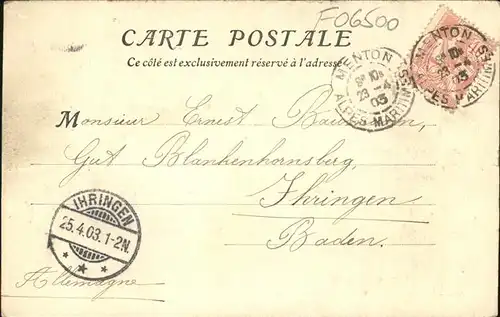 F06500
CARTE POSTALE
Ce côté est exclusivement réservé à l'adresse
MENTON
23 -4
03
ALPES MARITIMES
MENTON
03
ALPES MARITIMES
Monsieur Ernest
Gut Blankenhornsberg,
Ihringen
Baden.
IHRINGEN
25.4.03.1-2N.
Allemagne